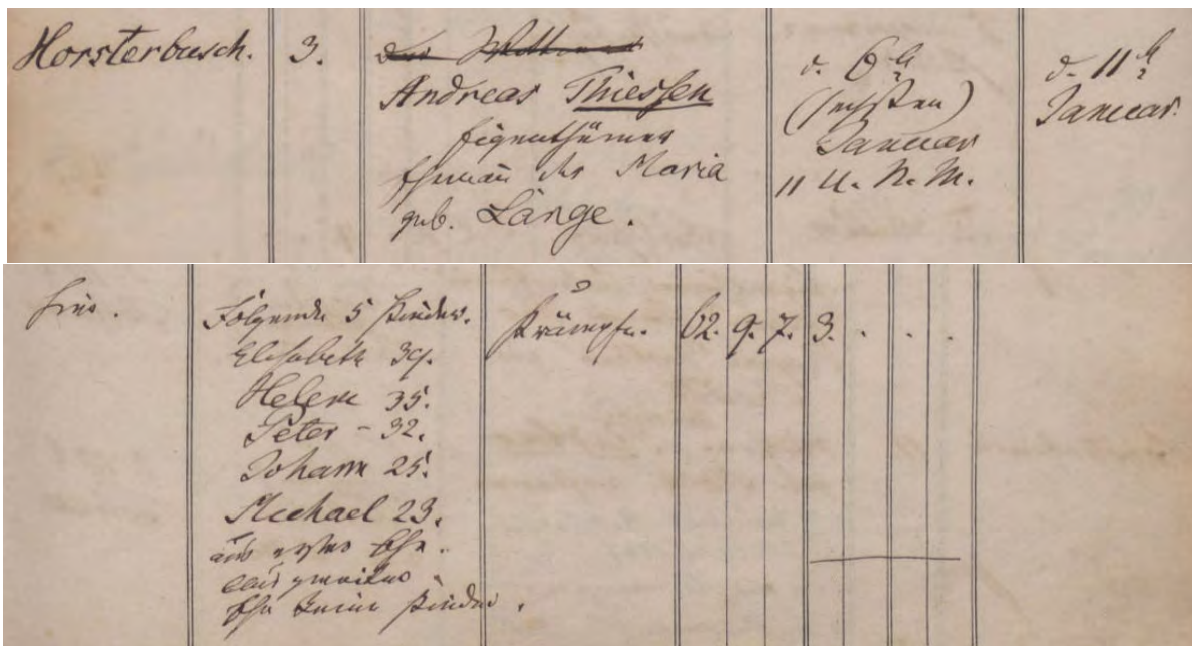 Horsterbusch.
3.
Andreas Thiessen
Eigenthümer
Ehemañ der Maria
geb. Länge.
d. 6
(sechsten)
Januar
11 U. N. M.
d. 11
Januar.
Hier.
Folgende 5 Kinder.
Elisabeth 39.
Helene 35.
Peter - 32.
Johann 25.
Michael 23.
aus erster Ehe.
aus zweiter
Ehe keine Kinder.
Krämpfe.
62. 9. 7. 3. . . .